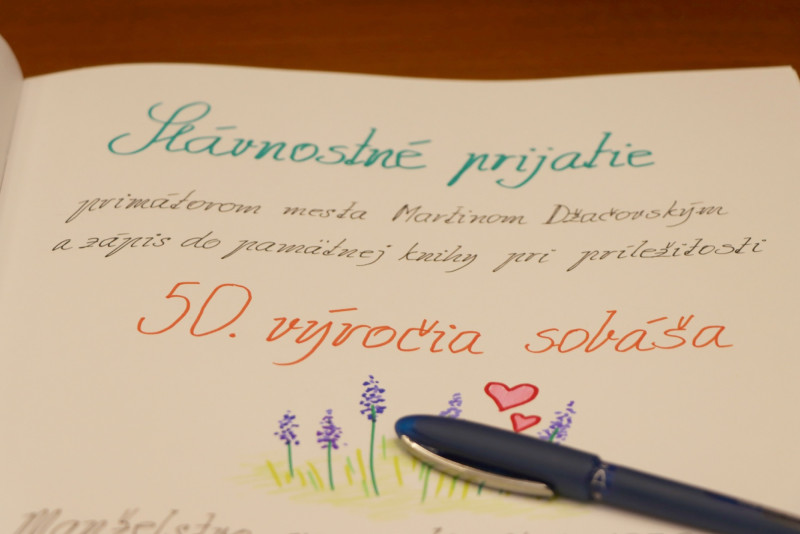 Slávnostné prijatie
primátorom mesta Martinom Džačovským
a zápis do pamätnej knihy pri príležitosti
50. výročia sobáša
Manželstvo